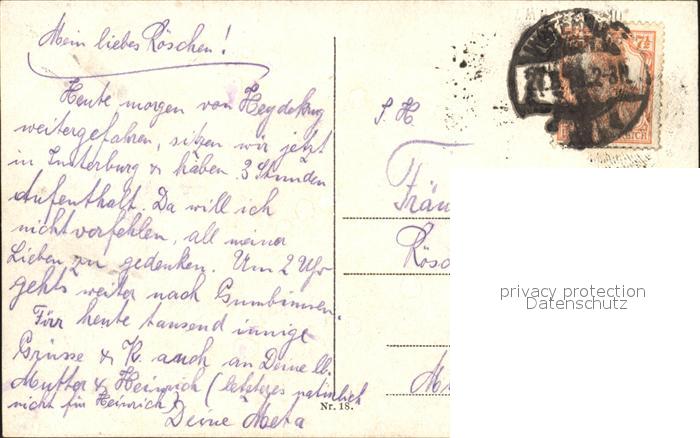 Mein liebes Röschen!
Heute morgen von Heydekrug
weitergefahren, sitzen wir jetzt
in Insterburg & haben 3 Stunden
Aufenthalt. Da will ich
nicht verfehlen, all meiner
Lieben zu gedenken. Um 2 Uhr
gehts weiter nach Gumbinnen.
Für heute tausend innige
Grüsse & K. auch an Deine lb.
Mutter & Heinrich (letzteres natürlich
nicht für Heinrich)
Deine Meta
Nr. 18.
7½
REICH
Fräu
Rösc
M
privacy protection
Datenschutz